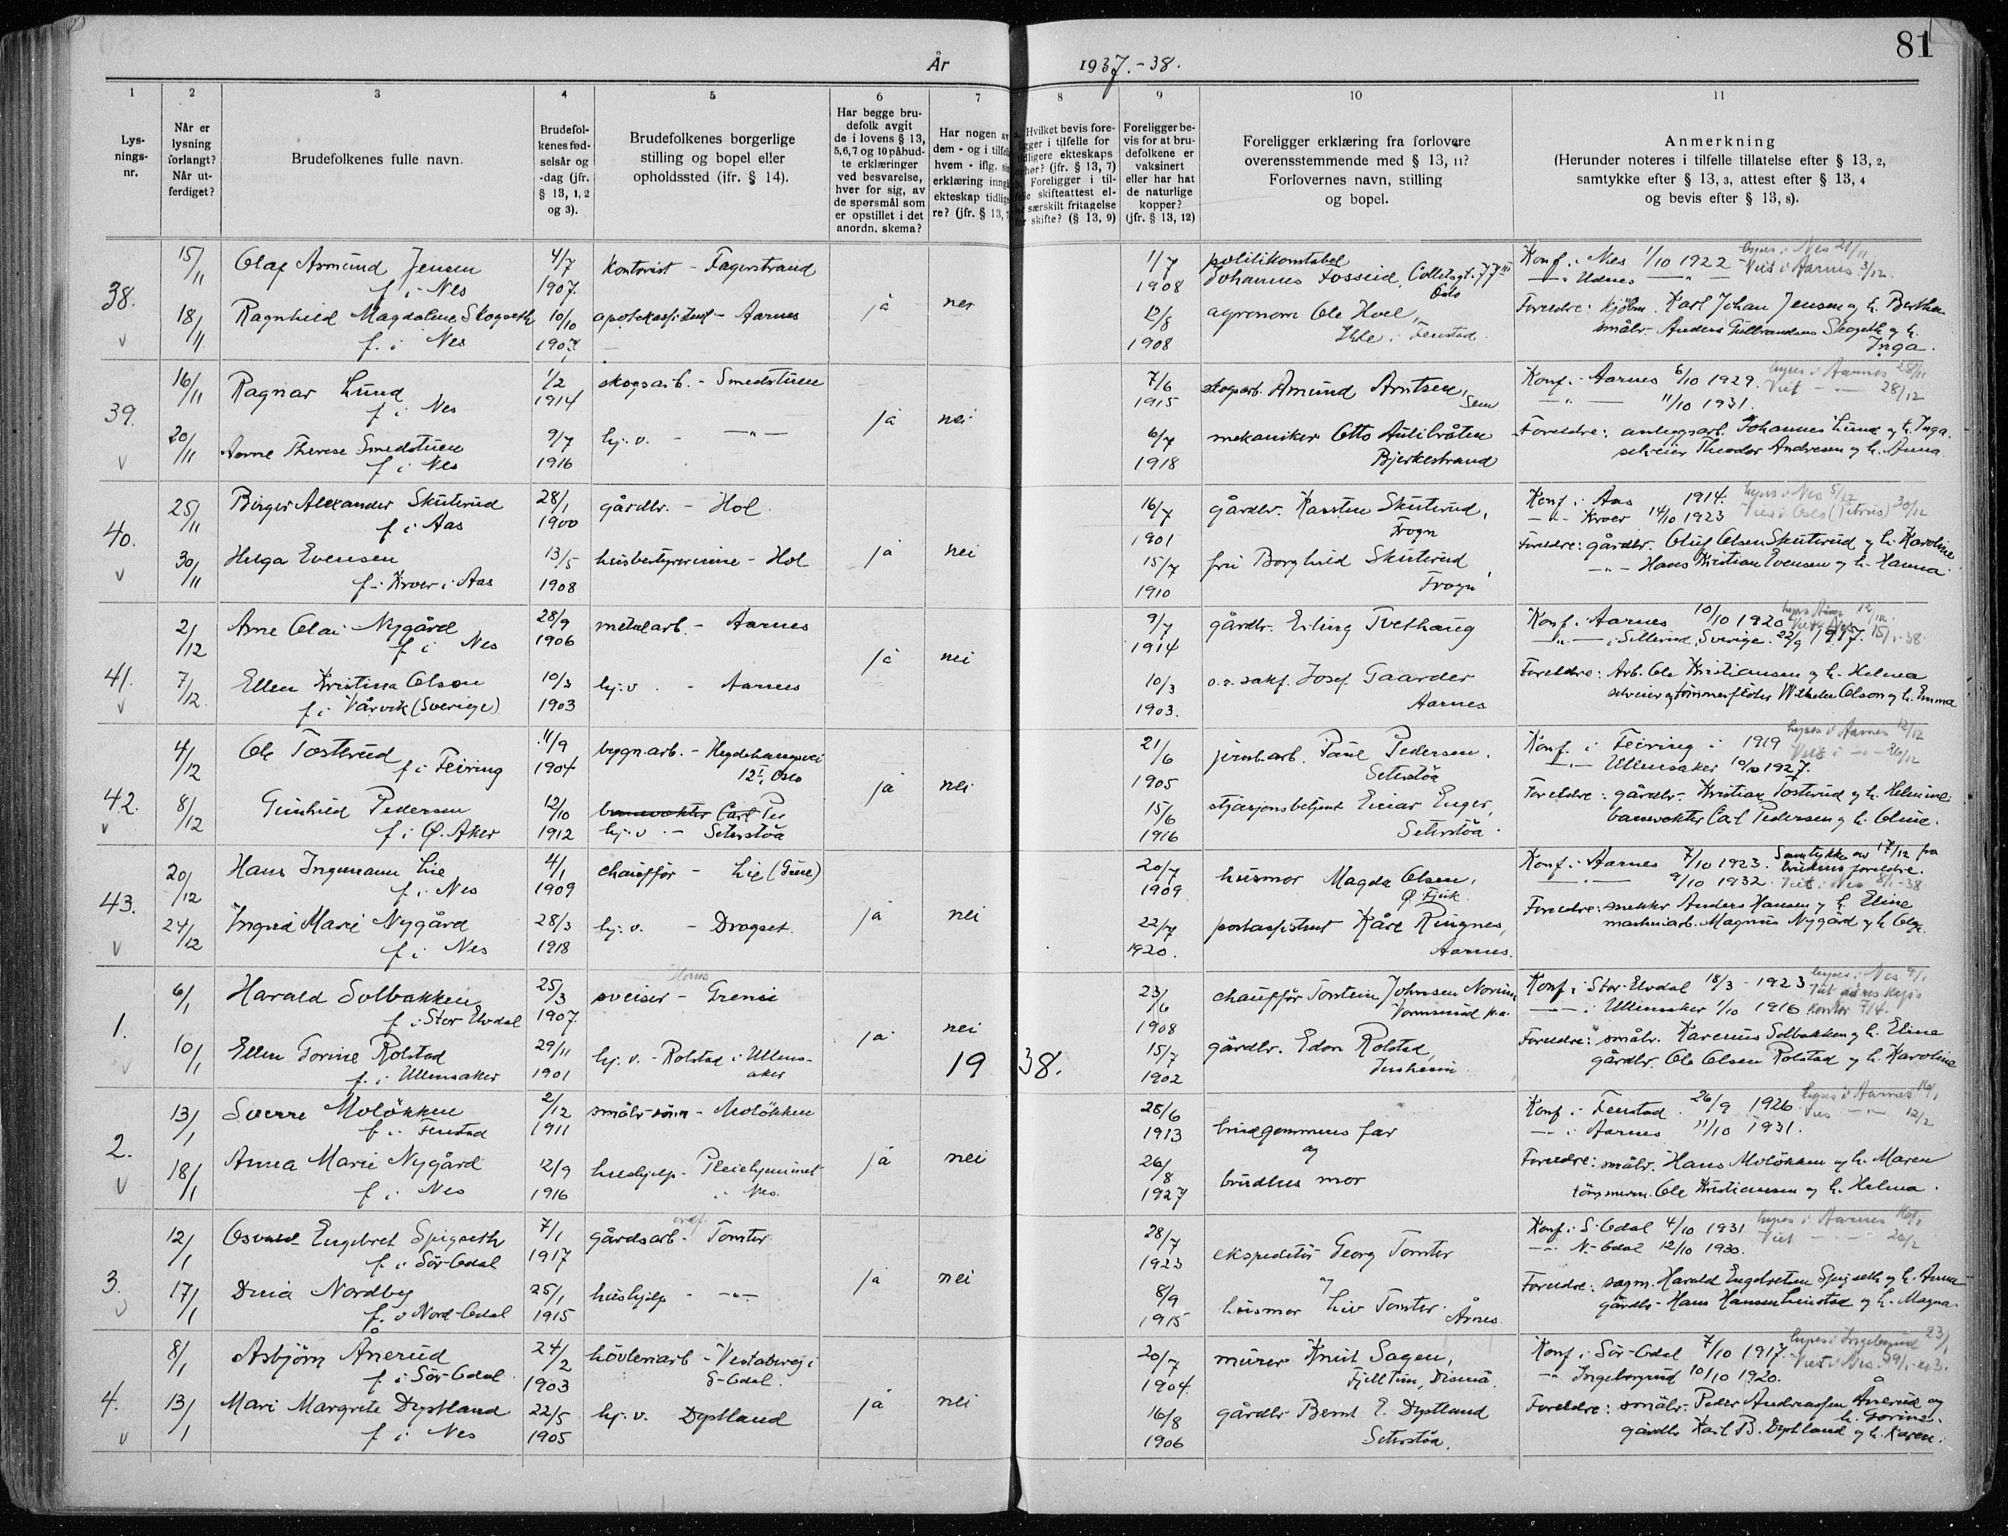 81
År 1937.-38.
1 2 3 4 5 6 7 8 9 10 11
Lys-
nings-
nr.
Når er
lysning
forlangt?
Når ut-
ferdiget?
Brudefolkenes fulle navn.
Brudefol-
kenes fød-
selsår og
-dag (jfr.
§ 13, 1, 2
og 3).
Brudefolkenes borgerlige
stilling og bopel eller
opholdssted (ifr. § 14).
Har begge bru-
defolk avgit
de i lovens § 13,
5,6,7 og 10 påbud-
te erklæringer
ved besvarelse,
hver for sig, av
de spørsmål som
er opstillet i det
anordn. skema?
Har nogen av
dem - og i tilfelle
hvem - iflg.
erklæring inngått
ekteskap tidlige-
re? (jfr. § 13,
Hvilket bevis fore-
ligger i tilfelle for
tidligere ekteskaps
ophør? (jfr. § 13, 7)
Foreligger i til-
felle skifteattest el-
særskilt fritagelse
for skifte? (§ 13, 9)
Foreligger be-
vis for at bru-
defolkene er
vaksinert
eller har hat
de naturlige
kopper?
(jfr. § 13, 12)
Foreligger erklæring fra forlovere
overensstemmende med § 13, 11?
Forlovernes navn, stilling
og bopel.
Anmerkning
(Herunder noteres i tilfelle tillatelse efter § 13, 2,
samtykke efter § 13, 3, attest efter § 13, 4
og bevis efter § 13, 8).
38.
15/11 Olaf Asmund Jensen 4/7 kontorist - Fagerstrand 1/7 politikonstabel Konf. i Nes 1/10 1922 lyses i Nes 21/11
f. i Nes 1907. 1908 Johannes Fosseid, Colletsgt. 77 III Oslo —"— i Udnes —"— Viet i Aarnes 3/12
18/11 Ragnhild Magdalene Skogseth 10/10 apotekassistent - Aarnes ja nei 12/8 agronom Ole Hoel, Foreldre: kjøbm. Karl Johan Jensen og h. Bertha
f. i Nes 1907. 1908 Fenstad. småbr. Anders Gulbrandsen Skogseth og h. Inga.
39.
16/11 Ragnar Lund 1/2 skogsarb. - Smedstuen 7/6 skogsarb. Amund Arntsen, Konf. i Aarnes 6/10 1929. lyses i Aarnes 28/11
f. i Nes 1914 1915 Sem —"— 11/10 1931. Viet —"— 28/12
20/11 Aarne Therese Smedstuen 9/7 hj. v. - —"— ja nei 6/7 mekaniker Otto Aulibråten Foreldre: anleggsarb. Johannes Lund og h. Inga.
f. i Nes 1916 1918 Bjerkestrand selveier Theodor Andresen og h. Anna.
40.
25/11 Birger Alexander Skuterud 28/1 gårdbr. - Hol. 16/7 gårdbr. Karsten Skuterud, Konf. i Aas 1914. lyses i Nes 5/12
f. i Aas 1900 1901 Frogn —"— Kroer 14/10 1923 Viet i Oslo (Petrus) 30/12
30/11 Helga Evensen 13/5 husbestyrerinne - Hol ja nei 15/7 fru Borghild Skuterud, Foreldre: gårdbr. Oluf Olsen Skuterud og h. Karoline
f. i Kroer i Aas 1908 1910 Frogn —"— Hans Kristian Evensen og h. Hanna.
41.
2/12 Arne Olai Nygård 28/9 metalarb. - Aarnes 9/7 gårdbr. Erling Tvethaug Konf. Aarnes 10/10 1920 12/12
f. i Nes 1906 1914 —"— i Sillerud, Sverige. 22/9 1917. 15/1-38.
7/12 Ellen Kristina Olson 10/3 hj. v. - Aarnes ja nei 10/3 o.r. sakf. Josef Gaarder Foreldre: Arb. Ole Kristiansen og h. Helma
f. i Vårvik (Sverige) 1903 1903. Aarnes selveier og tømmerfløter Wilhelm Olson og h. Emma
42.
4/12 Ole Tosterud 11/9 bygn.arb. - Hegdehaugsvei 21/6 jernb.arb. Paul Pedersen. Konf. i Feiring i 1919 lyses i Aarnes 12/12
f. i Feiring 1904 12 I, Oslo 1905 Seterstøa —"— Ullensaker 10/10 1927. Viet i —"— 26/12
8/12 Gunhild Pedersen 12/10 banevokter Carl Pe ja nei 15/6 stasjonsbetjent Einar Enger, Foreldre: gårdbr. Kristian Tosterud og h. Helmine
f. i Ø. Aker 1912 hj. v. - Seterstøa 1916 Seterstøa. banevokter Carl Pedersen og h. Oline.
43.
20/12 Hans Ingemann Lie 4/1 chauffør - Lie (Grue) 20/7 husmor Magda Olsen, Konf. i Aarnes 7/10 1923. Samtykke av 17/12 fra
f. i Nes 1909 1909 —"— 9/10 1932. brudens foreldre. Viet i Nes 8/1-38
24/12 Ingrid Marie Nygård 28/3 hj. v. - Dragset. ja nei 22/7 postassistent Kåre Ringnes, Foreldre: snekker Anders Hansen og h. Eline
f. i Nes 1918 1920. Aarnes. maskinarb. Magnus Nygård og h. Olga.
19 38.
1.
6/1 Harald Solbakken 25/3 sveiser - Grensi 23/6 chauffør Torstein Johnsen Norum Konf. i Stor-Elvdal 18/3 - 1923 lyses i Nes 9/1
f. i Stor Elvdal 1907. 1908 Vormsund p.a. —"— i Ullensaker 1/10 1916 kontor 7/4.
10/1 Ellen Gorine Rolstad 29/11 hj. v. - Rolstad i Ullens- ja nei 15/7 gårdbr. Edon Rolstad, Foreldre: småbr. Karenus Solbakken og h. Eline
f. i Ullensaker 1901 aker 1902 Jessheim. gårdbr. Ole Olsen Rolstad og h. Karoline
2.
13/1 Sverre Moløkken 2/12 småbr. sønn - Moløkken 28/6 brudgommens far Konf. i Fenstad. 26/9 1926. lyses i Aarnes 16/1
f. i Fenstad 1911 1913 og —"— i Aarnes 11/10 1931. Viet —"— 12/2
18/1 Anna Marie Nygård 12/9 hushjelp - Pleiehjemmet ja nei 26/8 brudens mor Foreldre: småbr. Hans Moløkken og h. Maren
f. i Nes 1916 i Nes. 1927 tømmerm. Ole Kristiansen og h. Helma.
3.
12/1 Osvald Engebret Spigseth 7/1 gårdsarb. - Tomter 28/7 ekspeditør Georg Tomter Konf. i S-Odal 4/10 1931 lyses i Aarnes 16/1
f. i Sør-Odal 1917 1923 og —"— N-Odal 12/10 1930. Viet —"— 20/2
17/1 Dina Nordby 25/1 hushjelp - —"— ja nei 8/9 husmor Liv Tomter. Foreldre: sagm. Harald Engebretsen Spigseth og h. Anna
f. i Nord-Odal 1915 1915 Årnes. gårdbr. Hans Hansen Linstad og h. Magna.
4.
8/1 Asbjørn Ånerud 24/2 høvleriarb. - Vestaberg i 20/7 murer Knut Sagen, Konf. i Sør-Odal 7/10 1917. lyses i Ingeborgrud 23/1
f. i Sør-Odal. 1903 S-Odal. 1904. Fjelltun, Disenå. —"— Ingeborgrud 10/10 1920. Viet i Nes.
13/1 Mari Margrete Dystland 22/5 hj. v. Dystland ja nei 16/8 gårdbr. Bernt E. Dystland Foreldre: småbr. Peder Andreassen Ånerud og h. Gorine.
f. i Nes 1905 1906 Seterstøa. gårdbr. Karl B. Dystland og h. Karen.